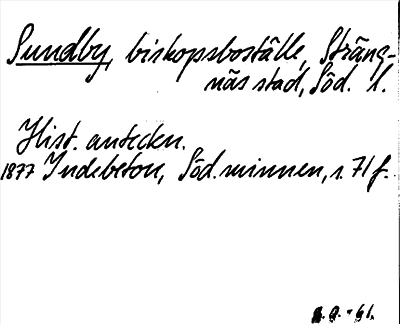 Sundby, biskopsboställe, Sträng-
näs stad, Söd. l.
Hist. anteckn.
1877 Indebetou, Söd. minnen, s. 71 f.